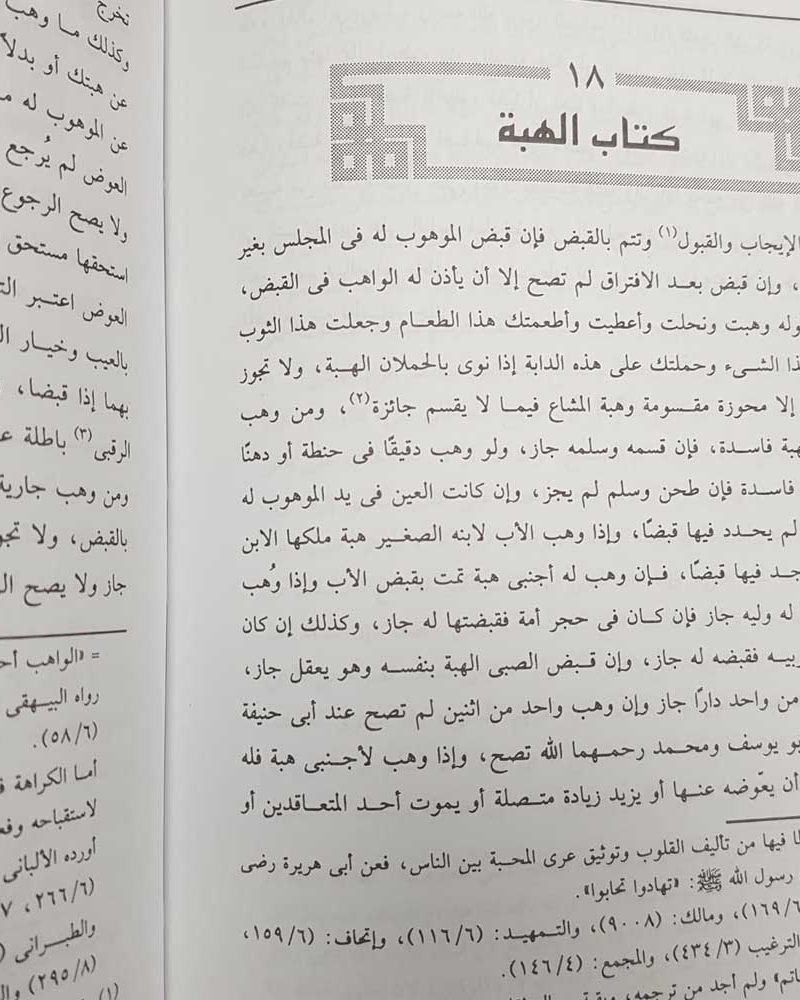 ١٨
كتاب الهبة
الإيجاب والقبول(١) وتتم بالقبض فإن قبض الموهوب له فى المجلس بغير
، وإن قبض بعد الافتراق لم تصح إلا أن يأذن له الواهب فى القبض،
وله وهبت ونحلت وأعطيت وأطعمتك هذا الطعام وجعلت هذا الثوب
ذا الشىء وحملتك على هذه الدابة إذا نوى بالحملان الهبة، ولا تجوز
إلا محوزة مقسومة وهبة المشاع فيما لا يقسم جائزة(٢)، ومن وهب
هبة فاسدة، فإن قسمه وسلمه جاز، ولو وهب دقيقًا فى حنطة أو دهنًا
فاسدة فإن طحن وسلم لم يجز، وإن كانت العين فى يد الموهوب له
لم يحدد فيها قبضًا، وإذا وهب الأب لابنه الصغير هبة ملكها الابن
جد فيها قبضًا، فإن وهب له أجنبى هبة تمت بقبض الأب وإذا وُهب
له وليه جاز فإن كان فى حجر أمة فقبضتها له جاز، وكذلك إن كان
ربيه فقبضه له جاز، وإن قبض الصبى الهبة بنفسه وهو يعقل جاز،
من واحد دارًا جاز وإن وهب واحد من اثنين لم تصح عند أبى حنيفة
بو يوسف ومحمد رحمهما الله تصح، وإذا وهب لأجنبى هبة فله
أن يعّوضه عنها أو يزيد زيادة متصلة أو يموت أحد المتعاقدين أو
لما فيها من تأليف القلوب وتوثيق عرى المحبة بين الناس، فعن أبى هريرة رضى
رسول الله ﷺ: «تهادوا تحابوا».
(١٦٩/٦)، ومالك: (٩٠٠٨)، والتمهيد: (١١٦/٦)، وإتحاف: (١٥٩/٦،
الترغيب (٤٣٤/٣)، والمجمع: (١٤٦/٤).
ولم أجد من ترجمه،
تخرج
وكذلك ما وهب
عن هبتك أو بدلاً
عن الموهوب له
العوض لم يُرجع
ولا يصح الرجوع
استحقها مستحق
العوض اعتبر
بالعيب وخيار
بهما إذا قبضا،
الرقبى(٣) باطلة
ومن وهب جارية
بالقبض، ولا
جاز ولا يصح
= «الواهب
رواه البيهقى
(٥٨/٦).
أما الكراهة
لاستقباحه
أورده الألبانى
(٢٦٦/٦،
والطبرانى
(٢٩٥/٨)
(١)